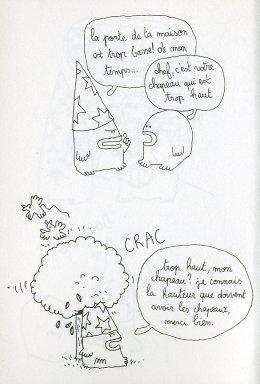 la porte de ta maison
est trop basse! de mon
temps...
chef, c'est votre
chapeau qui est
trop haut
CRAC
trop haut, mon
chapeau? je connais
la hauteur que doivent
avoir les chapeaux,
merci bien.